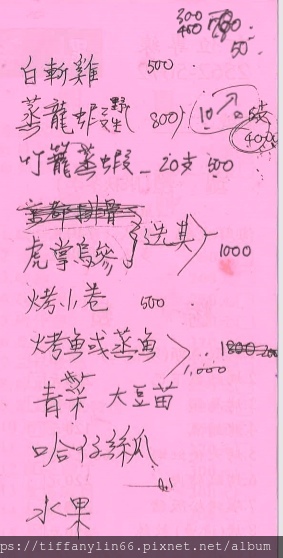 300
400
50
白斬雞 500
蒸龍蝦 野生 800) 10
400
叮籠蒸蝦 - 20支 500
虎掌烏參 } 選其 1000
烤小卷 500
烤魚或蒸魚 1,000
青菜 大豆苗
哈仔絲瓜
水果
ps://tiffanylin66.pixnet.net/album